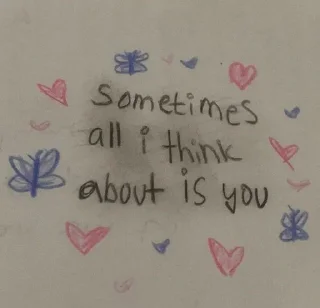 sometimes
all i think
about is you